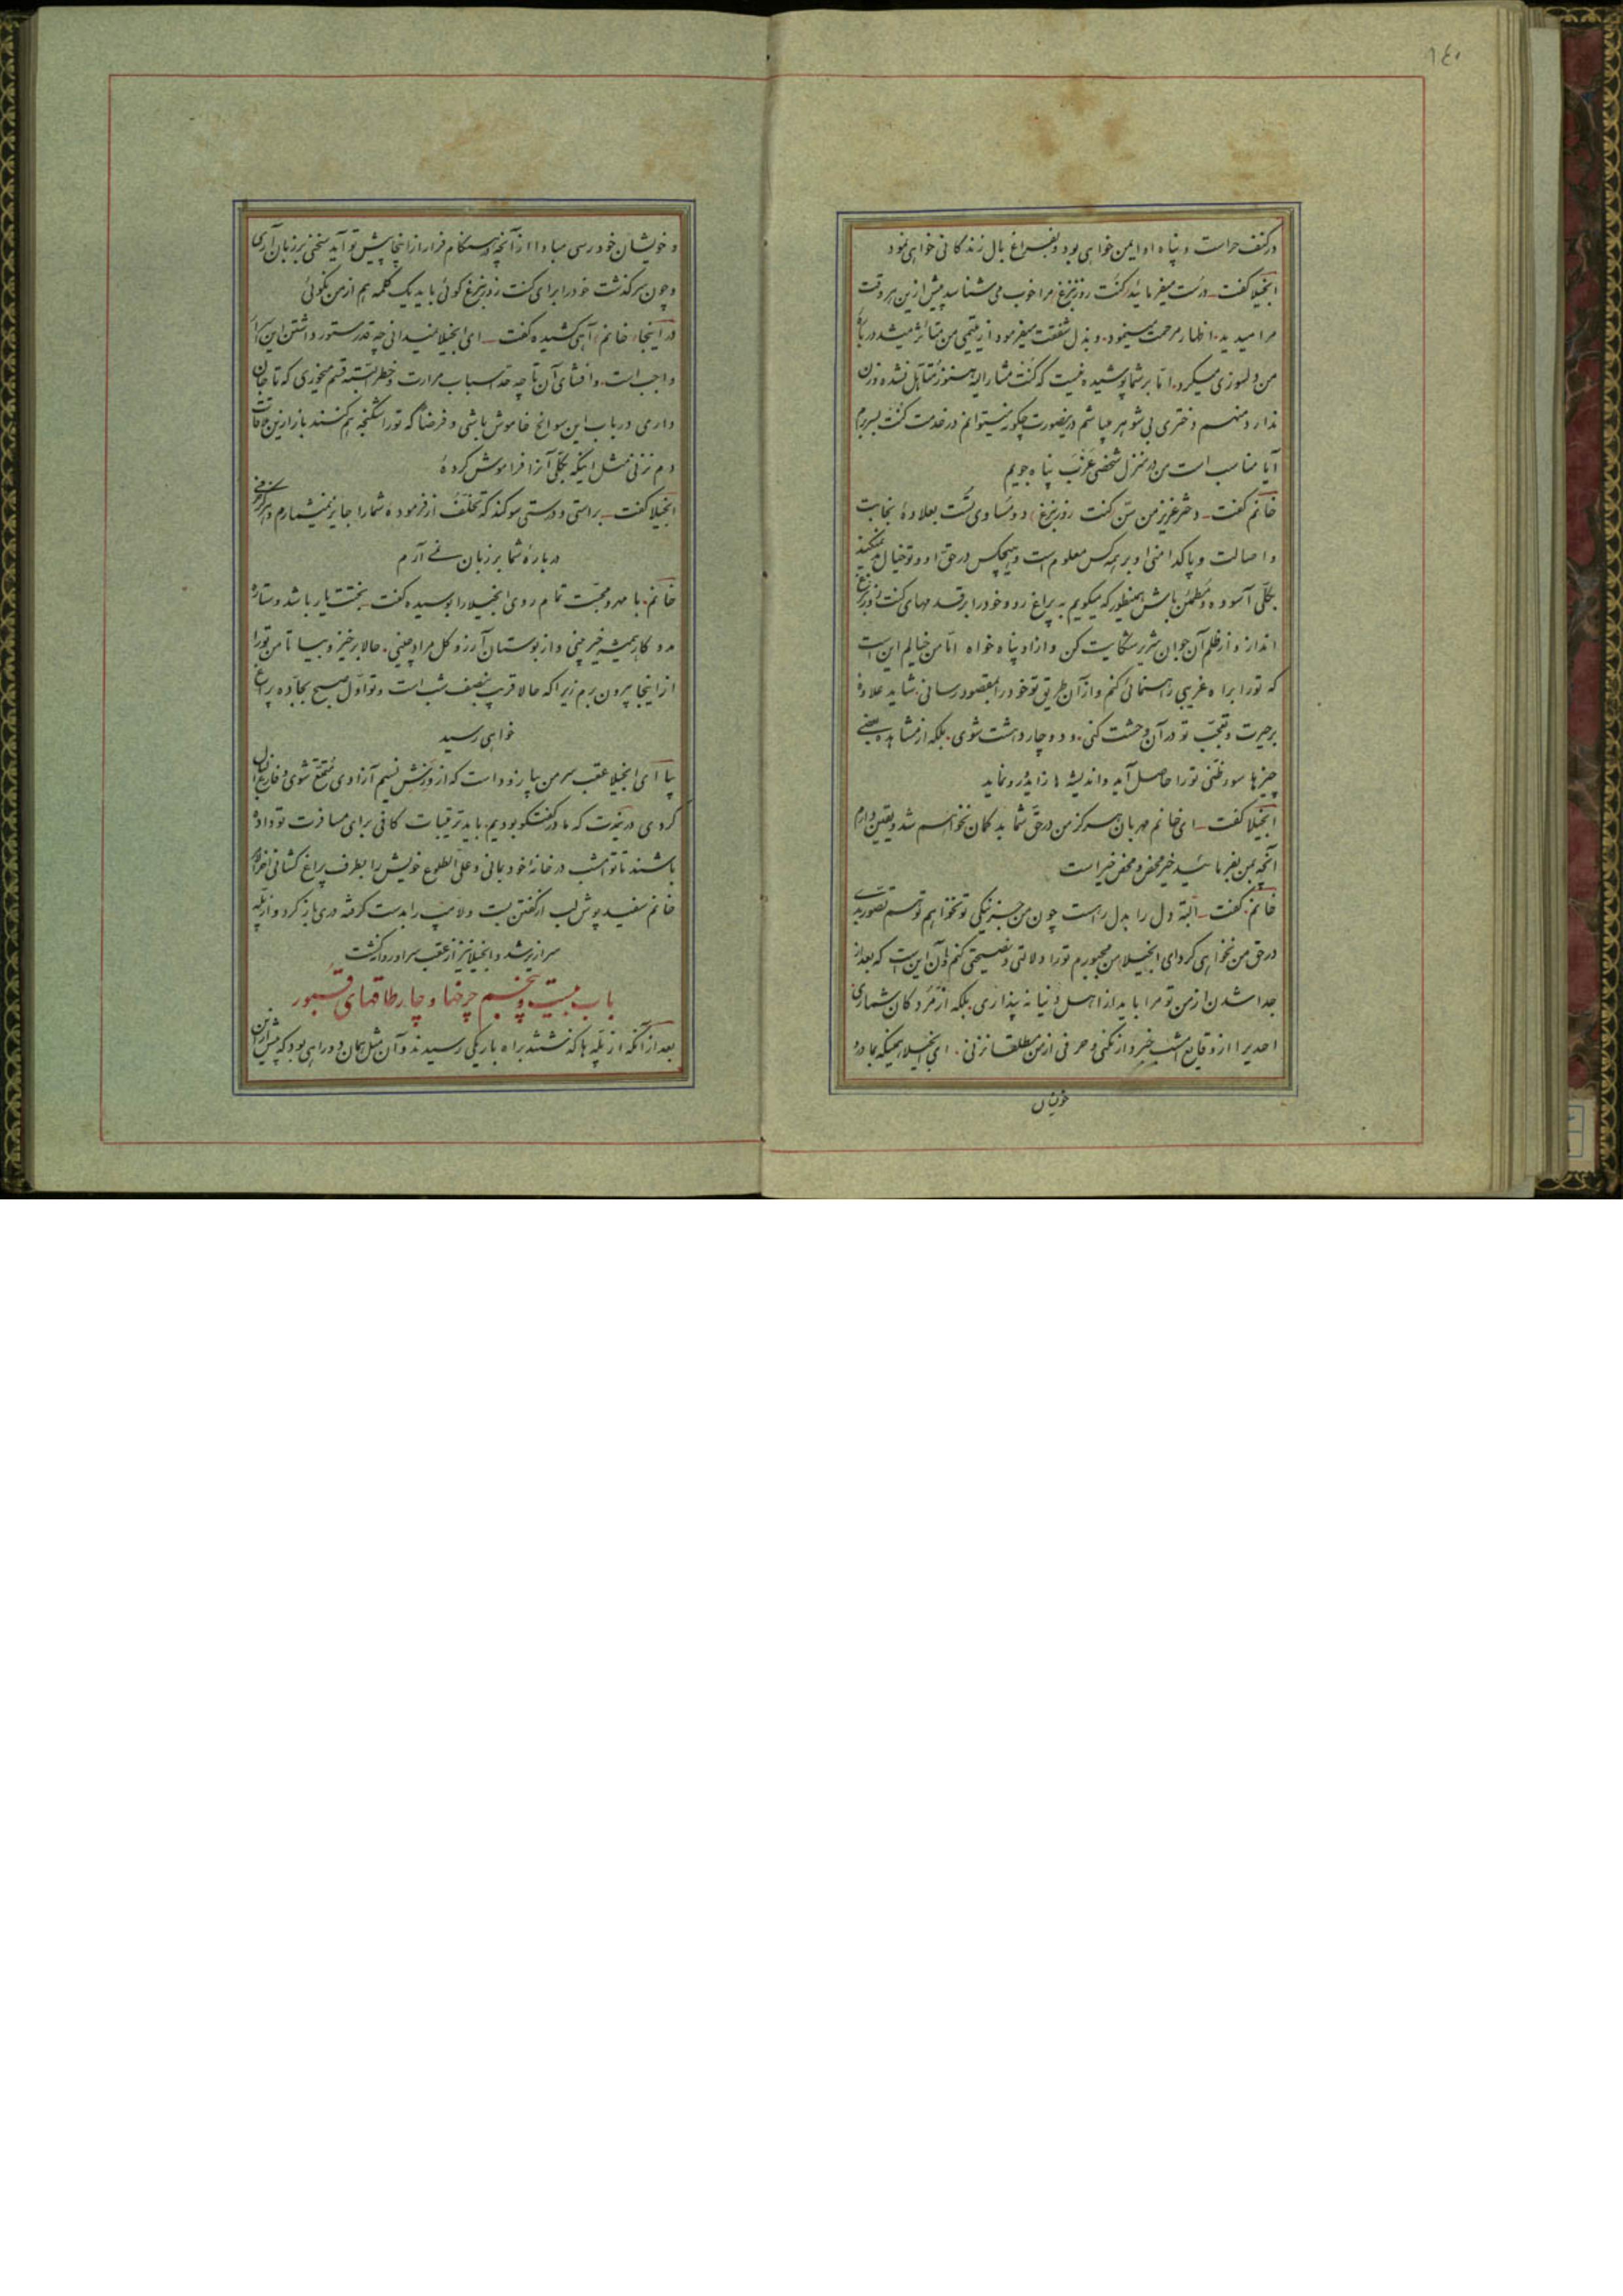 ١٤٠
در کنف حراست و پناه او ایمن خواهی بود و بفراغ بال زندگانی خواهی نمود
انجیلا گفت درست میفرمائید کنت روزنبرغ مرا خوب می شناسد پیش ازین هر وقت
مرا میدید اظهار مرحمت مینمود و بذل شفقت میفرمود از یتیمی من متأثر میشد در بارهٔ
من دلسوزی میکرد اما بر شما پوشیده نیست که کنت مشارالیه هنوز متأهل نشده و زن
ندارد و منهم دختری بی شوهر میباشم در نصورت چگونه میتوانم در خدمت کنت بسر برم
آیا مناسب است من در منزل شخصی عزب پناه جویم
خانم گفت دختر عزیز من سن کنت روزنبرغ دو مساوی تست بعلاوه نجابت
و اصالت و پاکدامنی او بر همه کس معلوم است و هیچکس در حق او و تو خیال بد نمیکند
بکلی آسوده و مطمئن باش همینطور که میگویم به پراغ رو و خود را بر قدمهای کنت روزنبرغ
انداز و از ظلم آن جوان شریر شکایت کن و از او پناه خواه اما من خیالم این است
که تو را براه غریبی راهنمائی کنم و از آن طریق تو خود را بمقصود رسانی شاید علاوهٔ
بر حیرت و تعجب تو در آن وحشت کنی و دوچار دهشت شوی بلکه از مشاهده بعضی
چیزها سوء ظنی تو را حاصل آید و اندیشه ها زاید و رو نماید
انجیلا گفت ای خانم مهربان هرگز من در حق شما بد گمان نخواهم شد و یقین دارم
آنچه بمن بفرمائید خیر محض و محض خیر است
خانم گفت البته دل را بدل راهست چون من جز نیکی تو نخواهم تو هم تصور بدی
در حق من نخواهی کرد ای انجیلا من مجبورم تو را دلالتی و نصیحتی کنم و آن این است که بعد از
جدا شدن از من تو مرا باید از اهل دنیا نه پنداری بلکه از مردگان شماری
احدی را از وقایع امشب خبردار نکنی و حرفی از من مطلقا نزنی ای انجیلا همینکه بمادر
خویشان
و خویشان خود رسی مبادا از آنچه در هنگام فرار از اینجا پیش تو آید سخنی بر زبان آری
و چون سرگذشت خود را برای کنت روزنبرغ گوئی باید یک کلمه هم از من نگوئی
در اینجا خانم آهی کشیده گفت ای انجیلا نمیدانی چه قدر مستور داشتن این
واجب است و افشای آن تا چه حد اسباب مرارت و خطر البته قسم میخوری که تا جان
داری در باب این سوانح خاموش باشی و فرضاً که تو را شکنجه هم کنند باز ازین
دم نزنی مثل اینکه بکلی آنرا فراموش کردهٔ
انجیلا گفت براستی و درستی سوگند که تخلف از فرمودهٔ شما را جایز نمیشمارم و هرگز حرفی
دربارهٔ شما بر زبان نمی آرم
خانم با مهر و محبت تمام روی انجیلا را بوسیده گفت بختت یار باشد و ستاره
مددکار همیشه خیر بینی و از بوستان آرزو گل مراد چینی حالا برخیز و بیا تا من تو را
از اینجا بیرون برم زیرا که حالا قریب بنصف شب است و تو اول صبح بجاده پراغ
خواهی رسید
بیا ای انجیلا عقب سر من بیا زود است که از وزش نسیم آزادی متمتع شوی و فارغ البال
گردی در مدت که ما در گفتگو بودیم باید ترتیبات کافی برای مسافرت تو داده
باشند تا تو امشب در خانه خود بمانی و علی الطلوع خویش را بطرف پراغ کشانی
خانم سفید پوش لب از گفتن بست و لامپ را بدست گرفته دری باز کرد و از پله
سرازیر شد و انجیلا نیز از عقب سر او روانه گشت
باب بیست و پنجم چرخها و چار طاقهای قبور
بعد از آنکه از پله ها گذشتند براه باریکی رسیدند و آن مثل همان دو راهی بود که پیش ازین